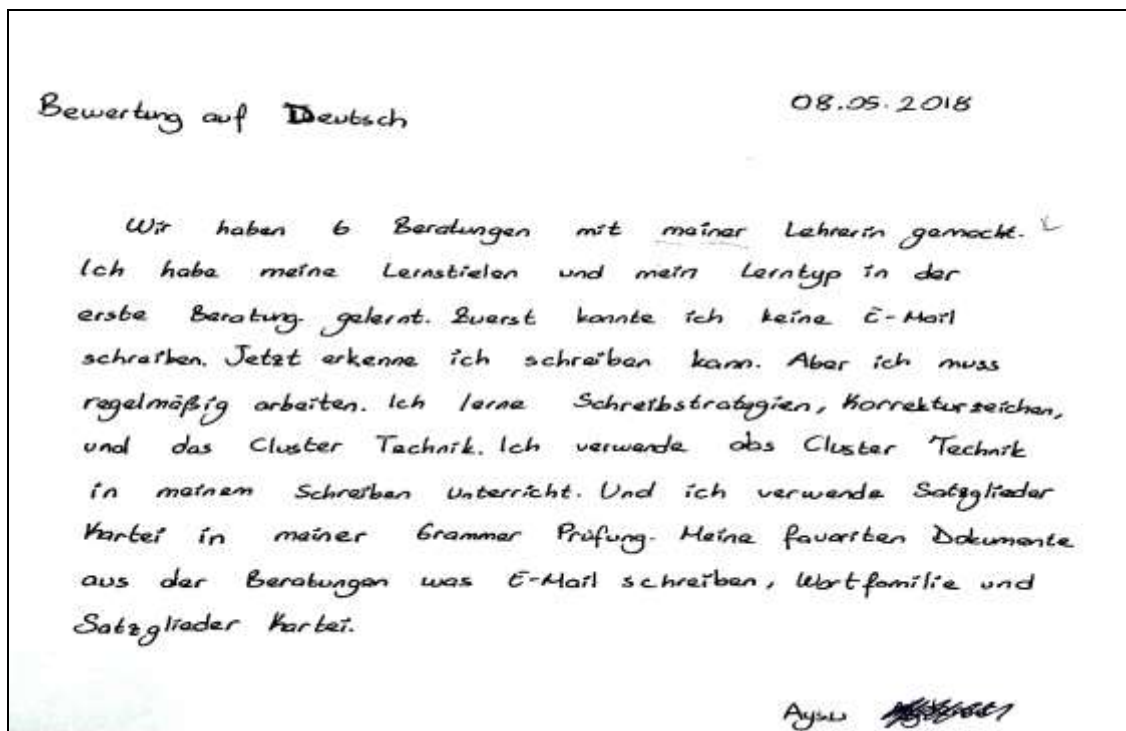 Bewertung auf Deutsch 08.05.2018
Wir haben 6 Beratungen mit meiner Lehrerin gemacht.
Ich habe meine Lernstielen und mein Lerntyp in der
erste Beratung gelernt. Zuerst konnte ich keine E-Mail
schreiben. Jetzt erkenne ich schreiben kann. Aber ich muss
regelmäßig arbeiten. Ich lerne Schreibstrategien, Korrekturzeichen,
und das Cluster Technik. Ich verwende das Cluster Technik
in meinem Schreiben Unterricht. Und ich verwende Satzglieder
Kartei in meiner Grammer Prüfung. Meine favoriten Dokumente
aus der Beratungen was E-Mail schreiben, Wortfamilie und
Satzglieder Kartei.
Aysu